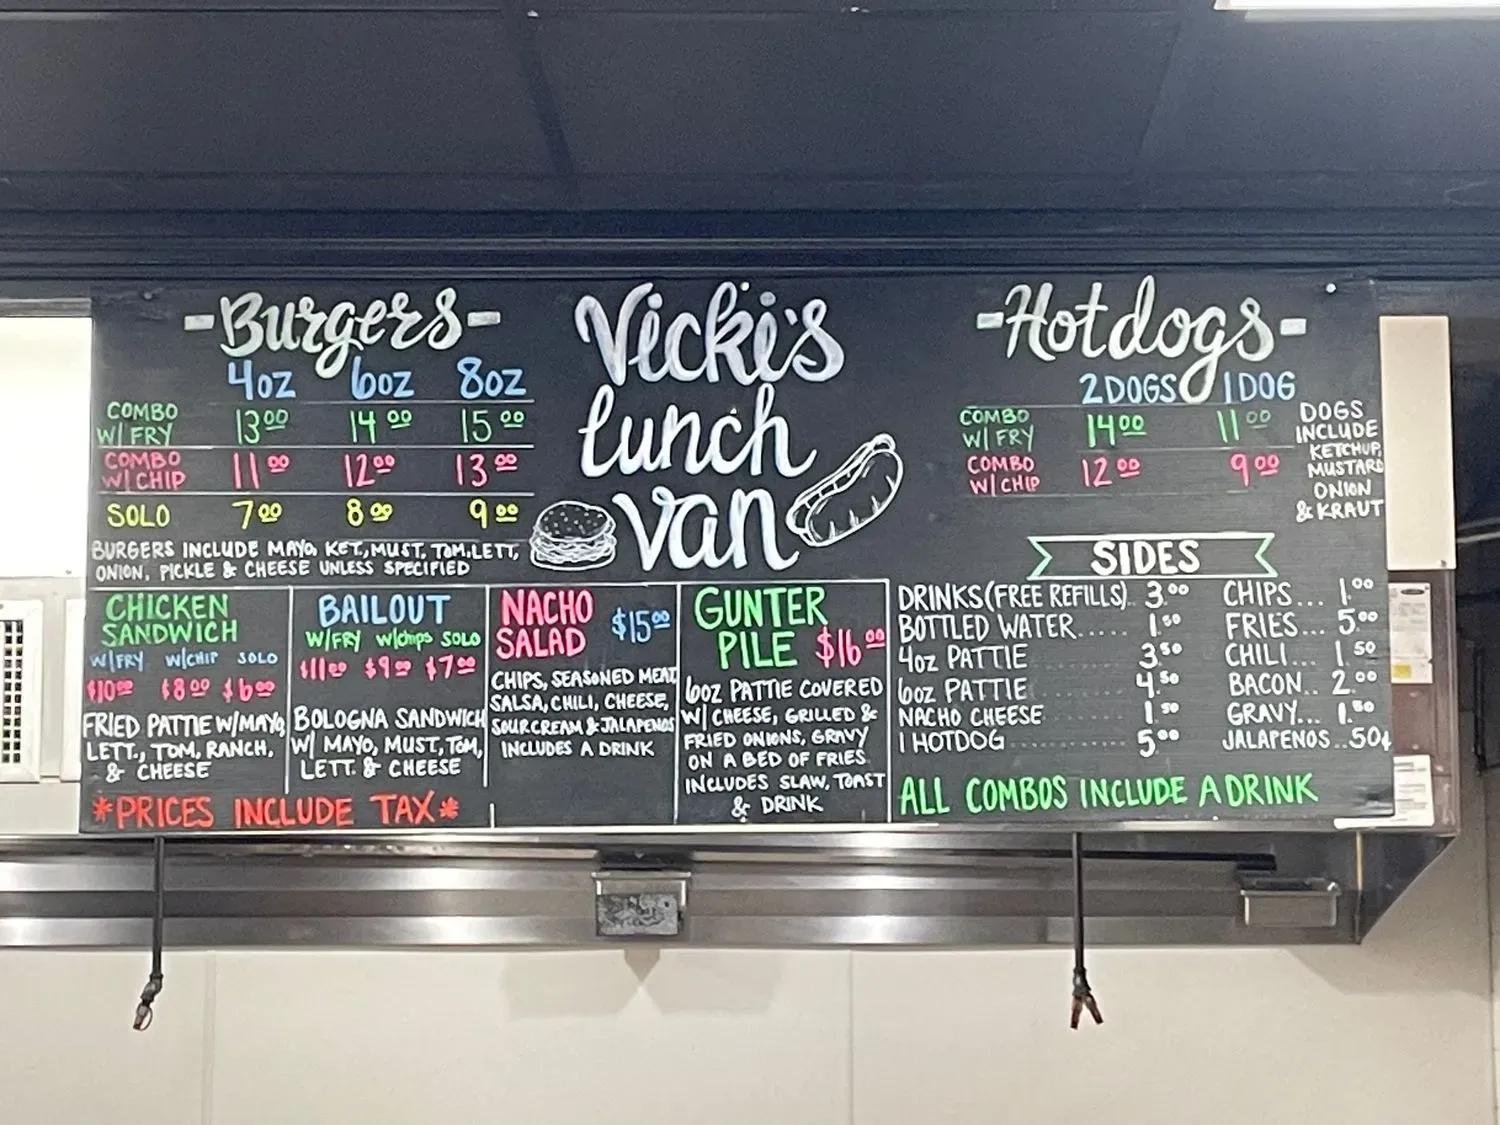 -Burgers-
4oz 6oz 8oz
COMBO W/ FRY 13.00 14.00 15.00
COMBO W/CHIP 11.00 12.00 13.00
SOLO 7.00 8.00 9.00
BURGERS INCLUDE MAYO, KET., MUST, TOM, LETT,
ONION, PICKLE & CHEESE UNLESS SPECIFIED
Vicki's
lunch
van
-Hotdogs-
2 DOGS 1 DOG
COMBO W/ FRY 14.00 11.00
COMBO W/ CHIP 12.00 9.00
DOGS
INCLUDE
KETCHUP,
MUSTARD
ONION
& KRAUT
CHICKEN
SANDWICH
W/FRY W/CHIP SOLO
$10.00 $8.00 $6.00
FRIED PATTIE W/MAYO,
LETT., TOM, RANCH,
& CHEESE
BAILOUT
W/FRY W/chips SOLO
$11.00 $9.00 $7.00
BOLOGNA SANDWICH
W/ MAYO, MUST, TOM,
LETT. & CHEESE
*PRICES INCLUDE TAX*
NACHO
SALAD $15.00
CHIPS, SEASONED MEAT
SALSA, CHILI, CHEESE,
SOUR CREAM & JALAPENOS
INCLUDES A DRINK
GUNTER
PILE $16.00
6oz PATTIE COVERED
W/ CHEESE, GRILLED &
FRIED ONIONS, GRAVY
ON A BED OF FRIES
INCLUDES SLAW, TOAST
& DRINK
SIDES
DRINKS (FREE REFILLS).. 3.00
BOTTLED WATER..... 1.50
4oz PATTIE ........ 3.50
6oz PATTIE ........ 4.50
NACHO CHEESE ....... 1.50
1 HOTDOG .......... 5.00
CHIPS... 1.00
FRIES... 5.00
CHILI... 1.50
BACON.. 2.00
GRAVY... 1.50
JALAPENOS..50¢
ALL COMBOS INCLUDE A DRINK